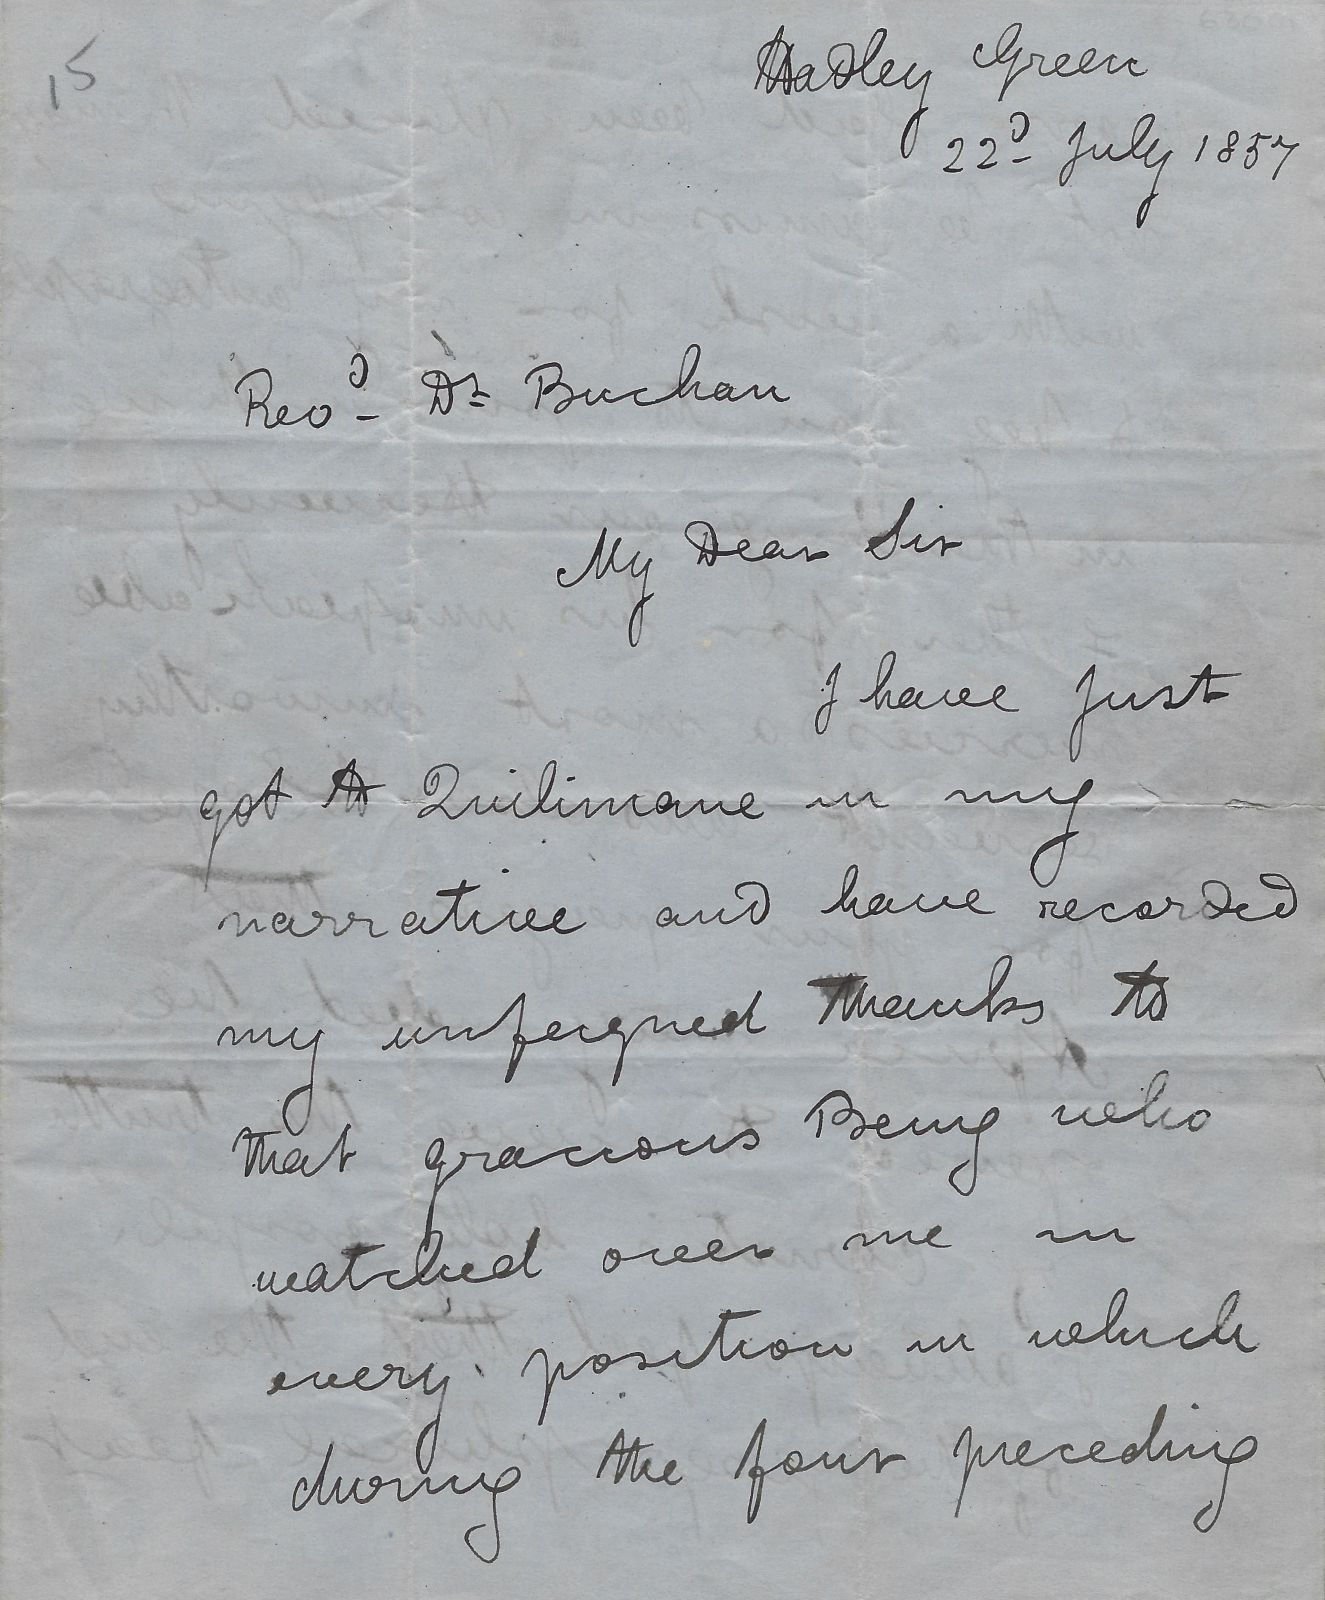 15
Hadley Green
22d July 1857
Revd Dr Buchan
My Dear Sir
I have just
got to Quilimane in my
narrative and have recorded
my unfeigned thanks to
that gracious Being who
watched over me in
every position in which
during the four preceding